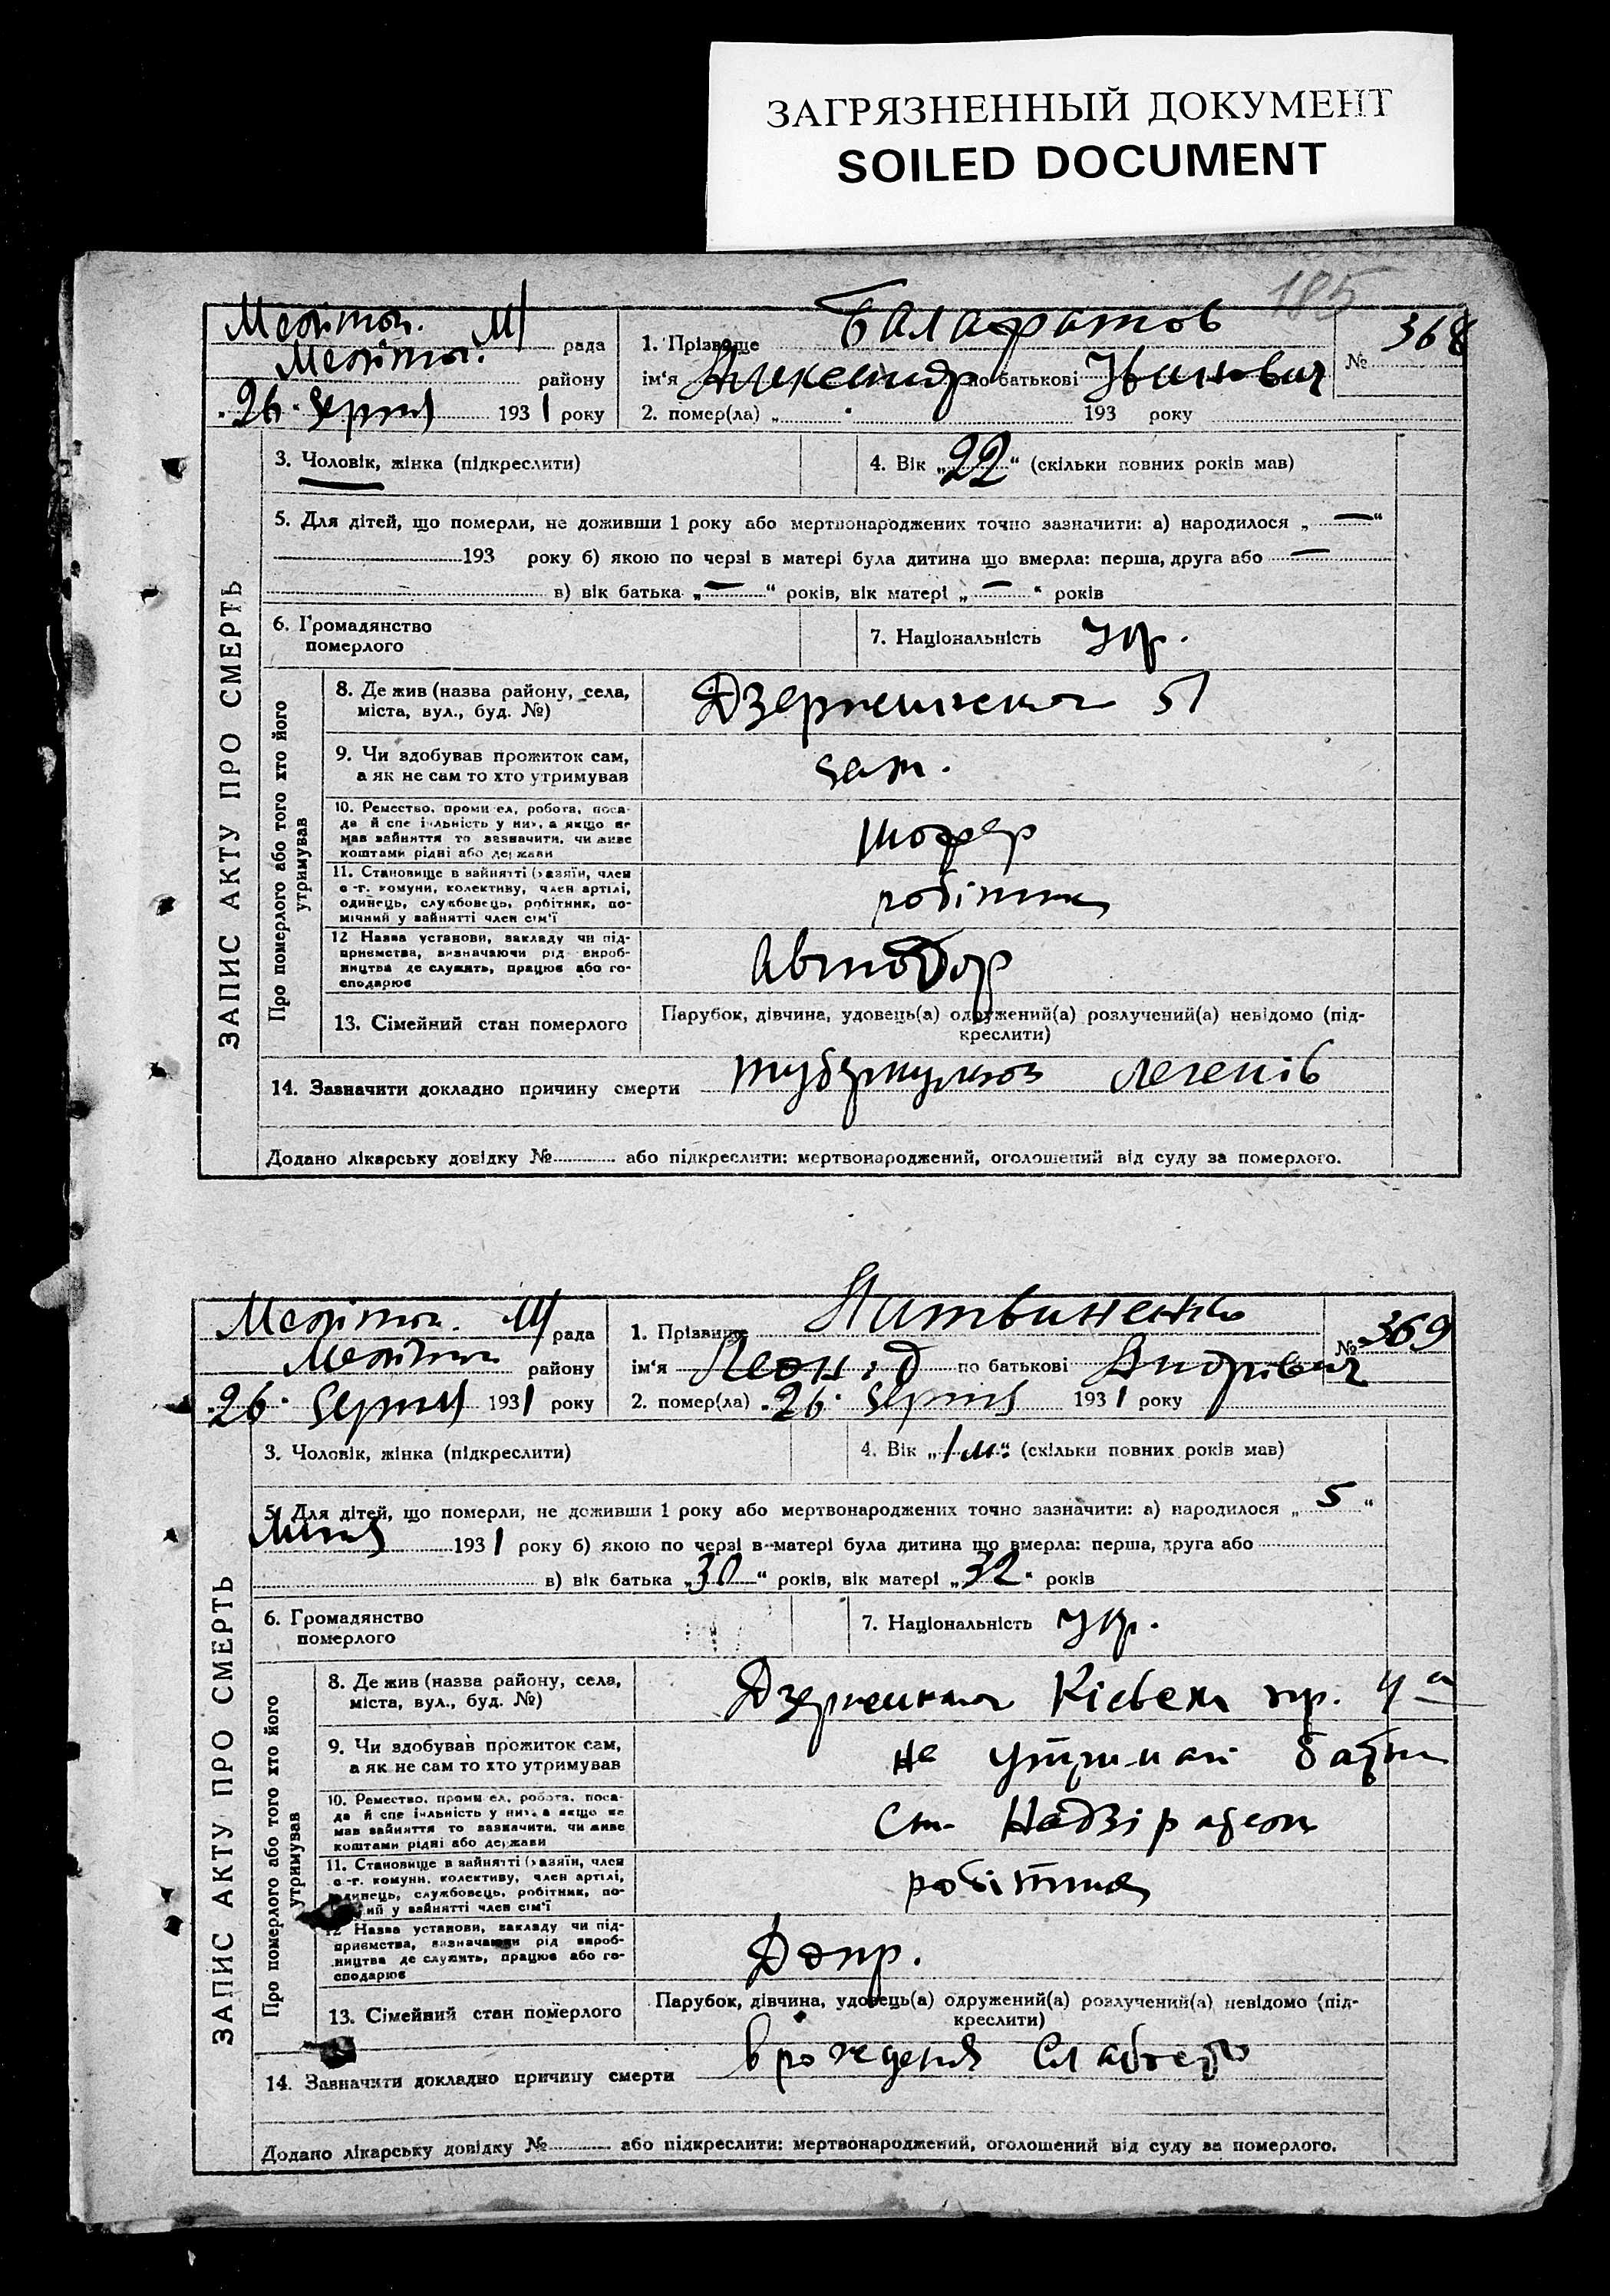 ЗАГРЯЗНЕННЫЙ ДОКУМЕНТ
SOILED DOCUMENT
185
ЗАПИС АКТУ ПРО СМЕРТЬ
Мелітоп. М/ рада
Мелітоп. району
26 серпня 1931 року
1. Прізвище Балафатов
ім'я Александр по батькові Іванович
№ 368
2. помер(ла) „ 193 року
3. Чоловік, жінка (підкреслити)
4. Вік „22“ (скільки повних років мав)
5. Для дітей, що померли, не доживши 1 року або мертвонароджених точно зазначити: а) народилося „—“
193 року б) якою по черзі в матері була дитина що вмерла: перша, друга або —
в) вік батька „—“ років, вік матері „—“ років
6. Громадянство
померлого
7. Національність Укр.
Про померлого або того хто його
утримував
8. Де жив (назва району, села,
міста, вул., буд. №)
Дзержинська 51
9. Чи здобував прожиток сам,
а як не сам то хто утримував
сам.
10. Ремество, промисел, робота, поса-
да й спеціяльність у них, а якщо не
мав зайняття то зазначити, чи живе
коштами рідні або держави
шофер
11. Становище в зайнятті (хазяїн, член
с.-г. комуни, колективу, член артілі,
одинець, службовець, робітник, по-
мічний у зайнятті член сім'ї
робітник
12 Назва установи, закладу чи під-
приємства, визначаючи рід вироб-
ництва де служить, працює або го-
сподарює
Автодор
13. Сімейний стан померлого
Парубок, дівчина, удовець(а) одружений(а) розлучений(а) невідомо (під-
креслити)
14. Зазначити докладно причину смерти туберкульоз легенів
Додано лікарську довідку № або підкреслити: мертвонароджений, оголошений від суду за померлого.
ЗАПИС АКТУ ПРО СМЕРТЬ
Мелітоп. М/ рада
Мелітоп району
26. серпня 1931 року
1. Прізвище
ім'я Леонід по батькові Андрієвич
№ 369
2. помер(ла) „26. серпня 1931 року
3. Чоловік, жінка (підкреслити)
4. Вік „1 м.“ (скільки повних років мав)
5. Для дітей, що померли, не доживши 1 року або мертвонароджених точно зазначити: а) народилося „5“
липня 1931 року б) якою по черзі в матері була дитина що вмерла: перша, друга або
в) вік батька „30“ років, вік матері „32“ років
6. Громадянство
померлого
7. Національність Укр.
Про померлого або того хто його
утримував
8. Де жив (назва району, села,
міста, вул., буд. №)
Дзержинська пр. 4а
9. Чи здобував прожиток сам,
а як не сам то хто утримував
на утриман батьк
10. Ремество, промисел, робота, поса-
да й спеціяльність у них, а якщо не
мав зайняття то зазначити, чи живе
коштами рідні або держави
Ст. Надзіратель
11. Становище в зайнятті (хазяїн, член
с.-г. комуни, колективу, член артілі,
одинець, службовець, робітник, по-
мічний у зайнятті член сім'ї
робітник
12 Назва установи, закладу чи під-
приємства, визначаючи рід вироб-
ництва де служить, працює або го-
сподарює
Допр.
13. Сімейний стан померлого
Парубок, дівчина, удовець(а) одружений(а) розлучений(а) невідомо (під-
креслити)
14. Зазначити докладно причину смерти врождення слабость
Додано лікарську довідку № або підкреслити: мертвонароджений, оголошений від суду за померлого.